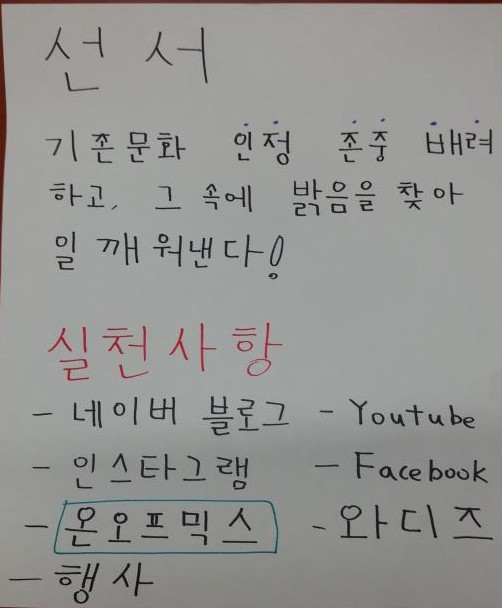 선서
기존문화 인정 존중 배려
하고, 그 속에 밝음을 찾아
일깨워낸다!
실천사항
- 네이버 블로그 - Youtube
- 인스타그램 - Facebook
- 온오프믹스 - 와디즈
- 행사